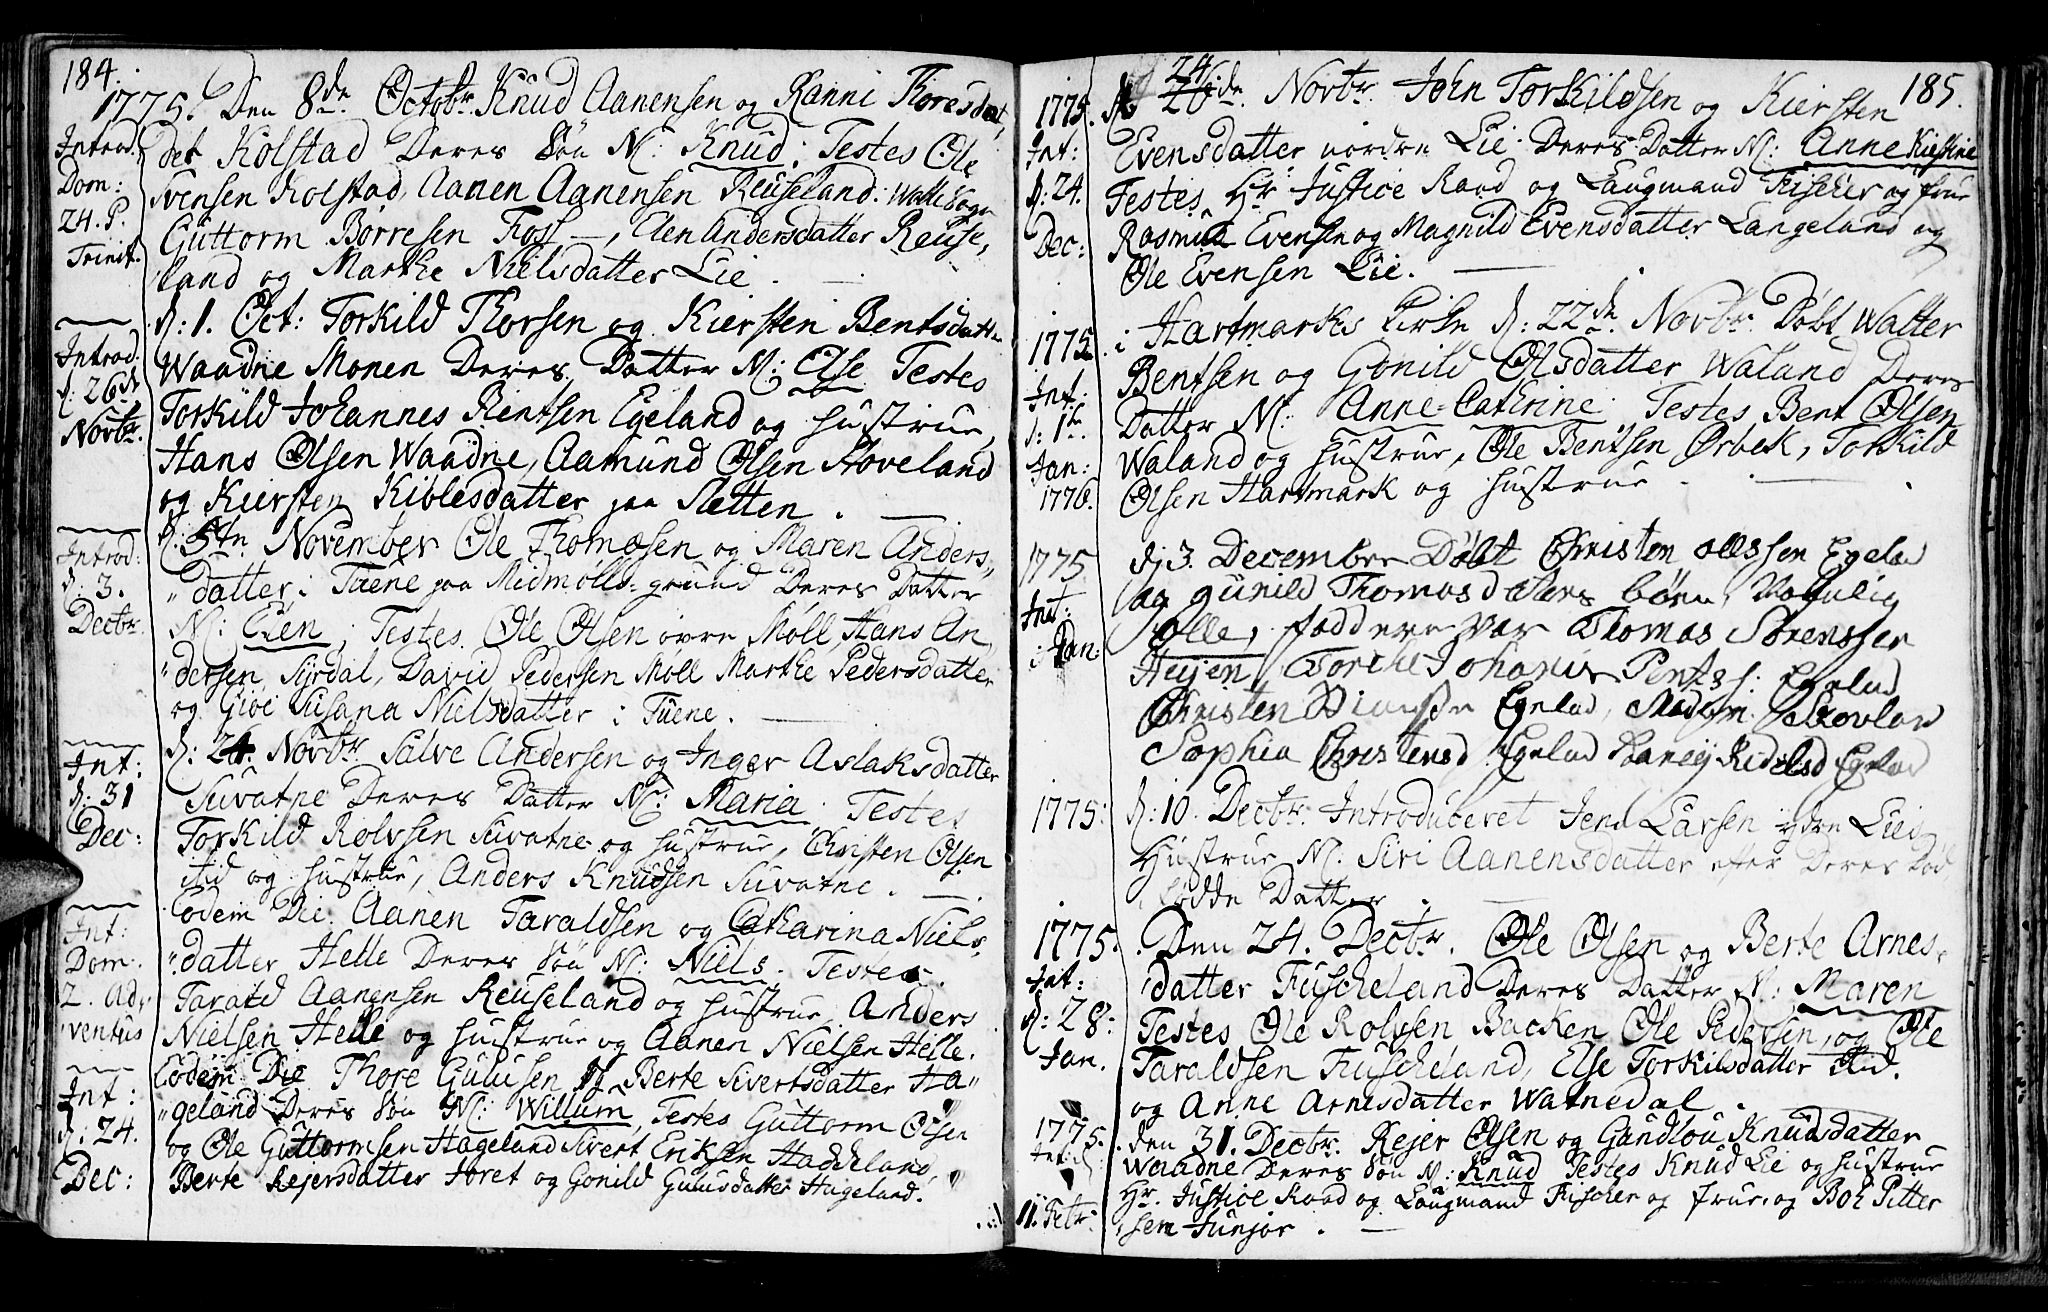 184.
1775. Den 8de Octobr. Knud Aanensen og Ranni Thoresdat,
Introd. det Kolstad Deres Søn N: Knud; Testes Ole
Dom: Svensen Kolstad, Aanen Aanensen Reuseland: Walle Sogn
24. P. Guttorm Børresen Foss —, Elen Andersdatter Reuse,
Trinit. land og Marthe Nielsdatter Lie.
d: 1. Oct: Torkild Thorsen og Kiersten Bentsdatt.
Introd. Waadne Monen Deres Datter N: Else Testes
d: 26de Torkild Johannes Bentsen Egeland og Hustrue,
Novbr. Hans Olsen Waadne, Aamund Olsen Stoveland
og Kiersten Kiblesdatter paa Sletten.
d. 5te November Ole Thomæsen og Maren Anders,
Introd: datter i Tuene paa Midmølls-grund Deres Datter
d: 3. N: Elen; Testes Ole Olsen øvre Møll, Hans An,
Dectbr. dersen Syrdal, David Pedersen Moll Marthe Pedersdatter
og Giøe Susana Nielsdatter i Tuene.
d: 24. Novbr. Salve Andersen og Inger Aslaksdatter
Int: Suvatne Deres Datter N: Maria. Testes
d: 31 Torkild Rolvsen Suvatne og Hustrue, Christen Olsen
Dec: ibid og Hustrue, Anders Knudsen Suvatne.
Eodem Die. Aanen Taraldsen og Catharina Niels,
Int: datter Helle Deres Søn N: Niels. Testes.
Dom. Tarald Aanensen Reuseland og Hustrue, Anders
2. Ad, Nielsen Helle og Hustrue og Aanen Nielsen Helle.
ventus
Eodem Die Thore Gulusen og Berte Sivertsdatter Ha"
Int: geland Deres Søn N: Willum, Testes Guttorm Olsen
d: 24. og Ole Guttormsen Hageland Sivert Eriksen Haddeland,
Dec: Berte Rejersdatter og Gonild Gunusdatter Hageland.
185.
1775. d. 24 26de. Novbr. John Torkildsen og Kiersten
Int: Evensdatter nordre Lie Deres Datter N: Anne Kistine
d: 24. Testes Hr. Justice Raad og Laugmand Fischer og frue
Dec: Rasmus Evensen og Magnild Evensdatter Langeland og
Ole Evensen Lie.
1775. i Hartmarks Kirke d: 22de Novbr. Døbt Walter
Int: Bentsen og Gonild Olsdatter Waland Deres
d: 1te. Datter N: Anne-Cathrine. Testes Bent Olsen
Jan: Waland og Hustrue, Ole Bentsen Ørbek, Torkild
1776. Olsen Hartmark og Hustrue.
1775 d. 3. December Døbt Christen Ollssen Egelad
Int: og gunild Thomasd børn,
i Jan: Olle, faddere var Thomas Sørensser
Heyen, Torkel Johanis Pents: Egelad
Christen Egelad,
Sophia Christensd Egelad Egelad
1775: d: 10. Dectbr. Introduceret Jens Larsen ydre Lies
Hustrue N. Siri Aanensdatter efter Deres Død,
fødde Datter.
1775. Den 24. Dectbr. Ole Olsen og Berte Arnes,
Int: datter Fuscheland Deres Datter N: Maren
d: 28: Testes Ole Rolvsen Backen Ole Pedersen, og Ole
Jan. Taraldsen Fuscheland, Else Torkilsdatter ibid.
og Anne Arnesdatter Watnedal.
1775. den 31. Dectbr. Rejer Olsen og Gundlou Knudsdatter
Int: d: Waadne Deres Søn N: Knud Testes Knud Lie og Hustrue
11. Febr: Hr. Justice Raad og Laugmand Fischer og frue, og Boe Pitter
sem Junjor.